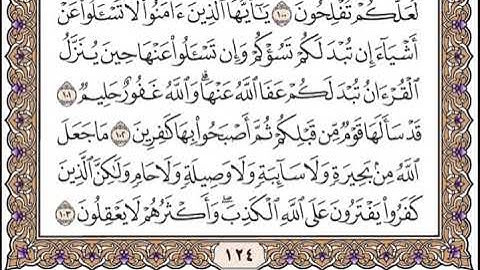 لَعَلَّكُمْ تُفْلِحُونَ ١٠٠ يَٰٓأَيُّهَا ٱلَّذِينَ ءَامَنُوا۟ لَا تَسْـَٔلُوا۟ عَنْ
أَشْيَآءَ إِن تُبْدَ لَكُمْ تَسُؤْكُمْ وَإِن تَسْـَٔلُوا۟ عَنْهَا حِينَ يُنَزَّلُ
ٱلْقُرْءَانُ تُبْدَ لَكُمْ عَفَا ٱللَّهُ عَنْهَا ۗ وَٱللَّهُ غَفُورٌ حَلِيمٌ ١٠١
قَدْ سَأَلَهَا قَوْمٌ مِّن قَبْلِكُمْ ثُمَّ أَصْبَحُوا۟ بِهَا كَٰفِرِينَ ١٠٢ مَا جَعَلَ
ٱللَّهُ مِنۢ بَحِيرَةٍ وَلَا سَآئِبَةٍ وَلَا وَصِيلَةٍ وَلَا حَامٍ ۙ وَلَٰكِنَّ ٱلَّذِينَ
كَفَرُوا۟ يَفْتَرُونَ عَلَى ٱللَّهِ ٱلْكَذِبَ ۖ وَأَكْثَرُهُمْ لَا يَعْقِلُونَ ١٠٣
١٢٤